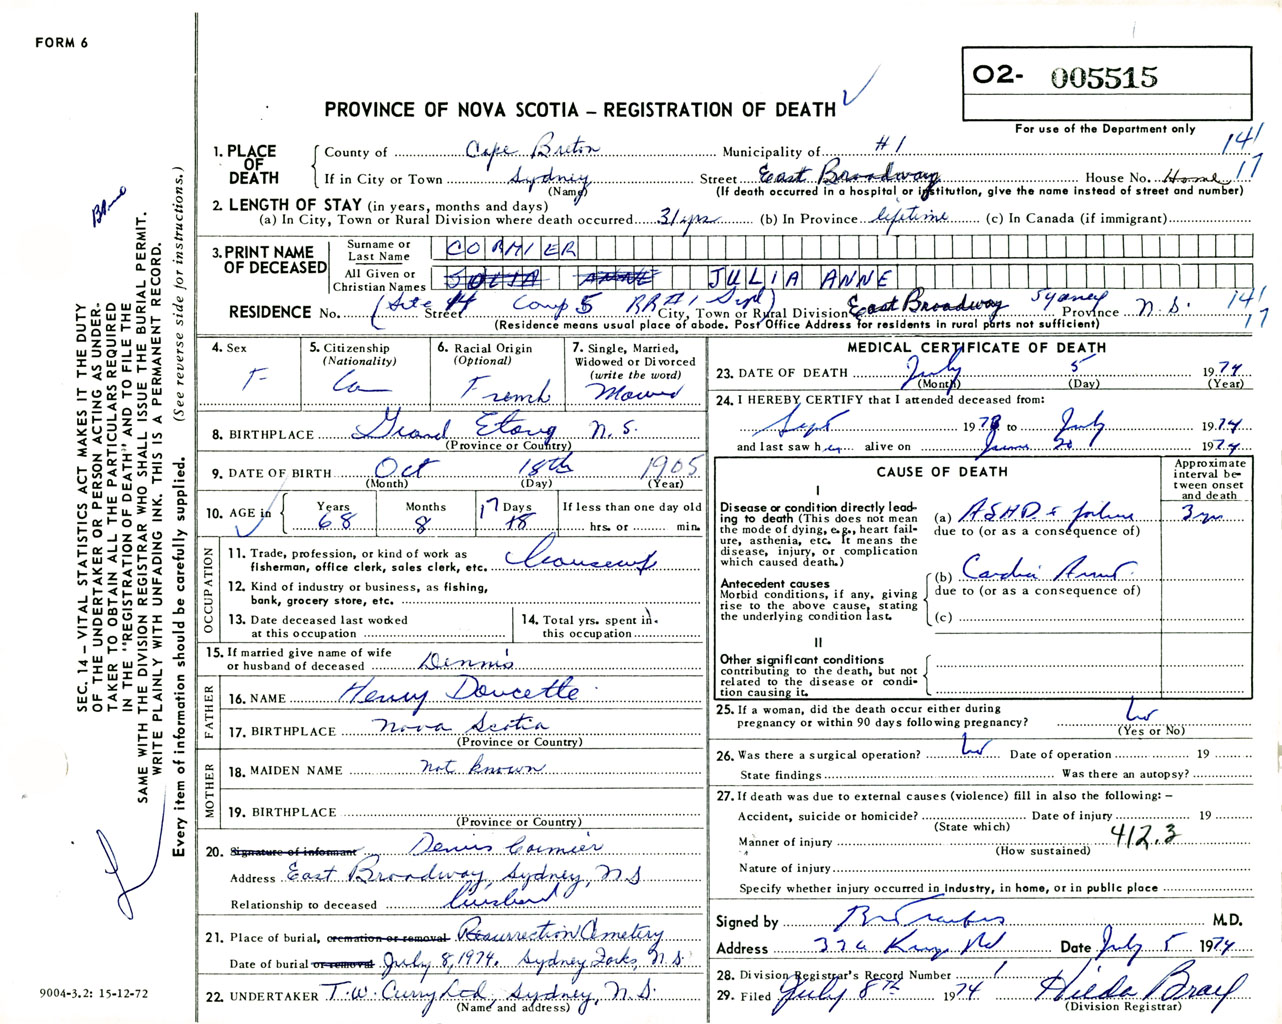 FORM 6
O2- 005515
PROVINCE OF NOVA SCOTIA – REGISTRATION OF DEATH
For use of the Department only
1. PLACE OF DEATH
County of Cape Breton Municipality of #1 141
If in City or Town Sydney Street East Broadway House No. Home 17
(Name) (If death occurred in a hospital or institution, give the name instead of street and number)
2. LENGTH OF STAY (in years, months and days)
(a) In City, Town or Rural Division where death occurred 31 yrs (b) In Province lifetime (c) In Canada (if immigrant)
3. PRINT NAME OF DECEASED
Surname or Last Name CORMIER
All Given or Christian Names JULIA ANNE JULIA ANNE
RESIDENCE No. (Site 14 Comp 5 RR#1 Syd) Street City, Town or Rural Division East Broadway Sydney Province N.S. 141
(Residence means usual place of abode. Post Office Address for residents in rural parts not sufficient) 17
4. Sex
F
5. Citizenship
(Nationality)
Ca
6. Racial Origin
(Optional)
French
7. Single, Married,
Widowed or Divorced
(write the word)
8. BIRTHPLACE Grand Etang N.S.
(Province or Country)
9. DATE OF BIRTH Oct 18th 1905
(Month) (Day) (Year)
10. AGE in
Years Months Days If less than one day old
68 8 17 18 hrs. or min.
OCCUPATION
11. Trade, profession, or kind of work as
fisherman, office clerk, sales clerk, etc. Housewife
12. Kind of industry or business, as fishing,
bank, grocery store, etc.
13. Date deceased last worked
at this occupation
14. Total yrs. spent in
this occupation
15. If married give name of wife
or husband of deceased Dennis
FATHER
16. NAME Henry Doucette
17. BIRTHPLACE Nova Scotia
(Province or Country)
MOTHER
18. MAIDEN NAME Not known
19. BIRTHPLACE
(Province or Country)
20. Signature of informant Dennis Cormier
Address East Broadway, Sydney, N S
Relationship to deceased husband
21. Place of burial, cremation or removal Resurrection Cemetery
Date of burial or removal July 8, 1974. Sydney Forks, N.S.
22. UNDERTAKER T.W. Curry Ltd, Sydney, N.S.
(Name and address)
MEDICAL CERTIFICATE OF DEATH
23. DATE OF DEATH July 5 1974
(Month) (Day) (Year)
24. I HEREBY CERTIFY that I attended deceased from:
Sept 1973 to July 1974
and last saw her alive on June 20 1974
CAUSE OF DEATH
Approximate
interval be-
tween onset
and death
I
Disease or condition directly lead-
ing to death (This does not mean
the mode of dying, e.g., heart fail-
ure, asthenia, etc. It means the
disease, injury, or complication
which caused death.)
(a) ASHD & failure 3 yrs
due to (or as a consequence of)
Antecedent causes
Morbid conditions, if any, giving
rise to the above cause, stating
the underlying condition last.
(b) Cardiac Arrest
due to (or as a consequence of)
(c)
II
Other significant conditions
contributing to the death, but not
related to the disease or condi-
tion causing it.
25. If a woman, did the death occur either during
pregnancy or within 90 days following pregnancy? No
(Yes or No)
26. Was there a surgical operation? No Date of operation 19
State findings Was there an autopsy?
27. If death was due to external causes (violence) fill in also the following: –
Accident, suicide or homicide? Date of injury 19
(State which)
Manner of injury 412.3
(How sustained)
Nature of injury
Specify whether injury occurred in industry, in home, or in public place
Signed by M.D.
Address 326 Kings Rd Date July 5 1974
28. Division Registrar's Record Number 1
29. Filed July 8th 1974 Hilda
(Division Registrar)
SEC. 14 – VITAL STATISTICS ACT MAKES IT THE DUTY
OF THE UNDERTAKER OR PERSON ACTING AS UNDER-
TAKER TO OBTAIN ALL THE PARTICULARS REQUIRED
IN THE "REGISTRATION OF DEATH" AND TO FILE THE
SAME WITH THE DIVISION REGISTRAR WHO SHALL ISSUE THE BURIAL PERMIT.
WRITE PLAINLY WITH UNFADING INK. THIS IS A PERMANENT RECORD.
Every item of information should be carefully supplied. (See reverse side for instructions.)
9004-3.2: 15-12-72